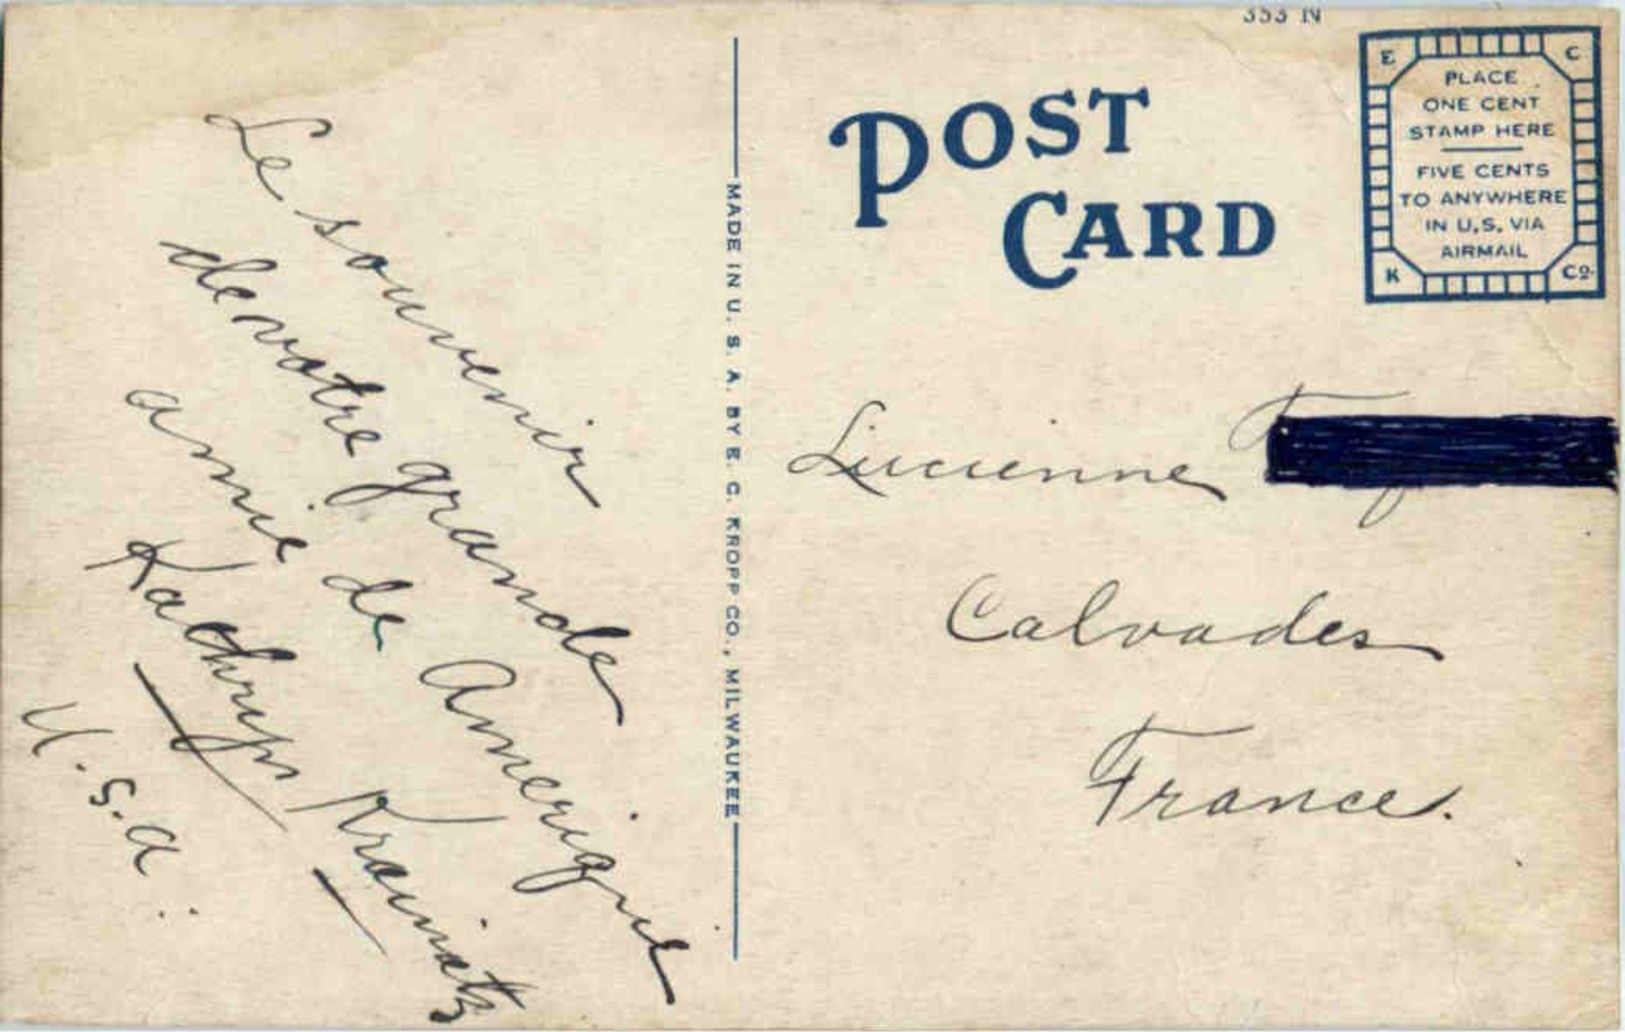 Le souvenir
de votre grande
amie de Amerique
Kathryn Krainatz
U.S.A.
353 N
POST
CARD
E C
PLACE
ONE CENT
STAMP HERE
FIVE CENTS
TO ANYWHERE
IN U.S. VIA
AIRMAIL
K Co.
MADE IN U. S. A. BY E. C. KROPP CO., MILWAUKEE
Lucienne
Calvados
France.